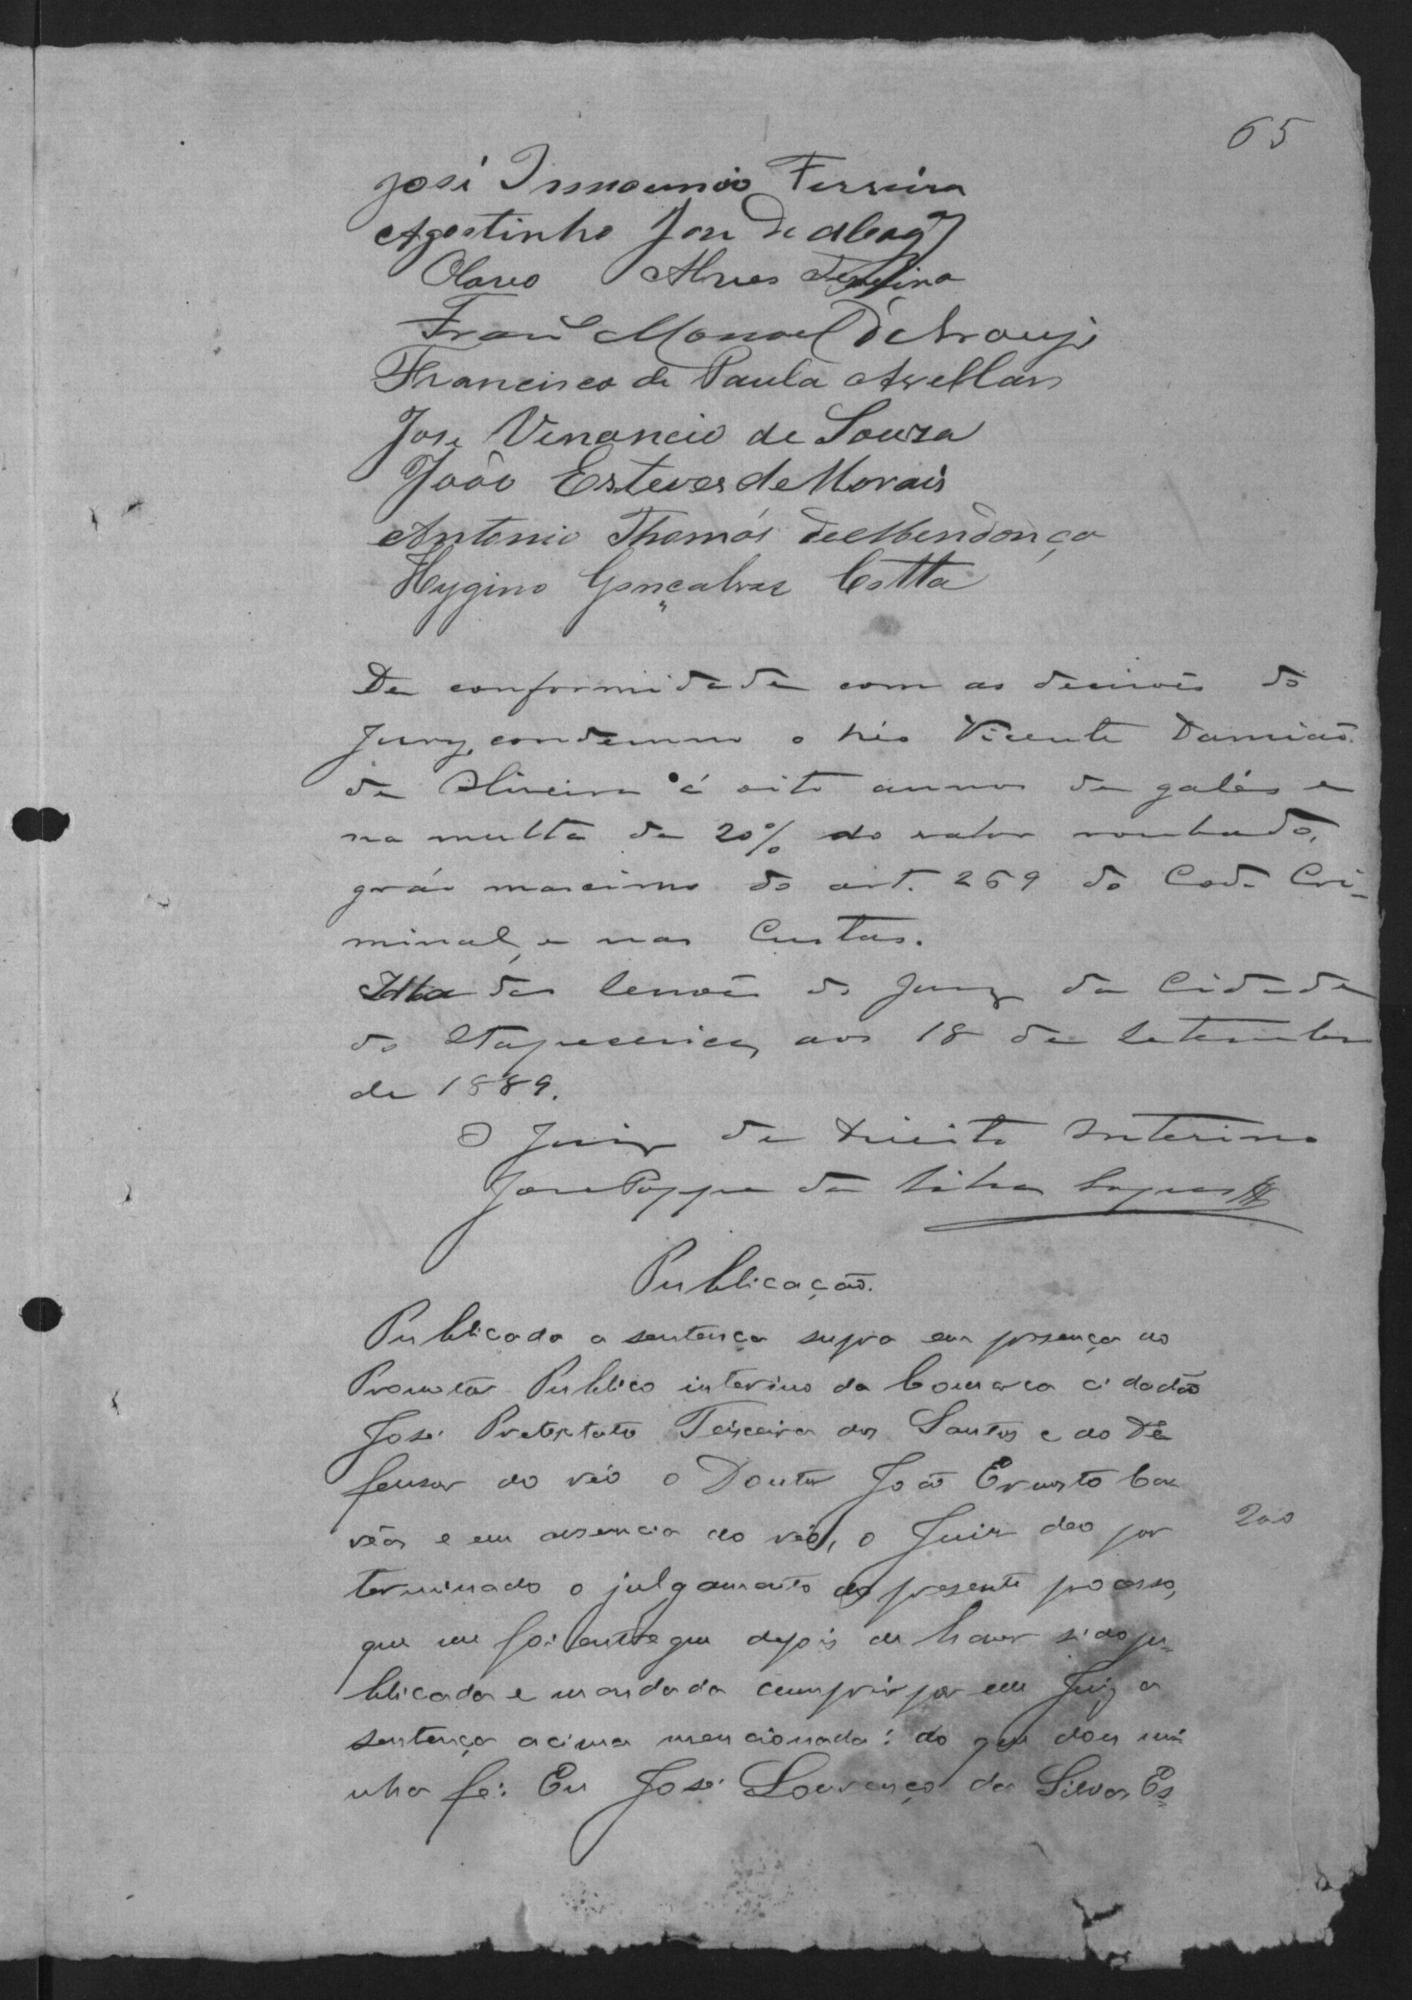 65
José Innocencio Ferreira
Agostinho José de
Olavo Alves
Franco Manoel d'Araujo
Francisco de Paula Avellar
José Venancio de Souza
João Esteves de Morais
Antonio Thomás de Mendonça
Hygino Gonçalves Cotta
De conformidade com as decisões do
Jury, condemno o réo Vicente Damião
de Oliveira á oito annos de galés e
na multa de 20% do valor roubado,
gráo maximo do art. 269 do Cod. Cri-
minal, e nas Custas.
Salla das Sessões do Jury da Cidade
de Itapecerica, aos 18 de Setembro
de 1889.
O Juiz de Direito Interino
José Poppe da Silva Lopes
Publicação.
Publicada a sentença supra em presença do
Promotor Publico interino da Comarca cidadão
José Pretextato Teixeira dos Santos e do De
fensor do réo o Doutor João Ernesto Cor
rêa e em ausencia do réo, o Juiz deo por
200
terminado o julgamento do presente processo,
que me foi entregue depois de haver sido pu-
blicada e mandada cumprir por em Juiz a
sentença acima mencionada: do que dou mi
nha fé. Eu José Lourenço da Silva, Es-